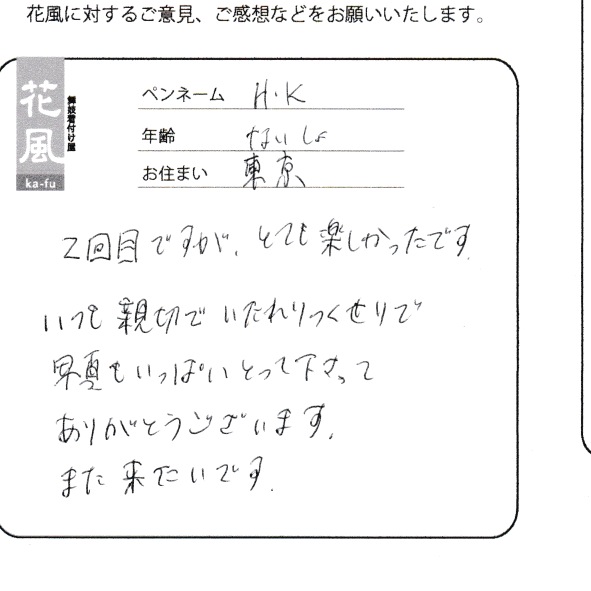 花風に対するご意見、ご感想などをお願いいたします。
花風
舞妓着付け屋
ka-fu
ペンネーム H・K
年齢 ないしょ
お住まい 東京
2回目ですが、とても楽しかったです
いつも親切でいたれりつくせりで
写真もいっぱいとって下さって
ありがとうございます。
また来たいです。